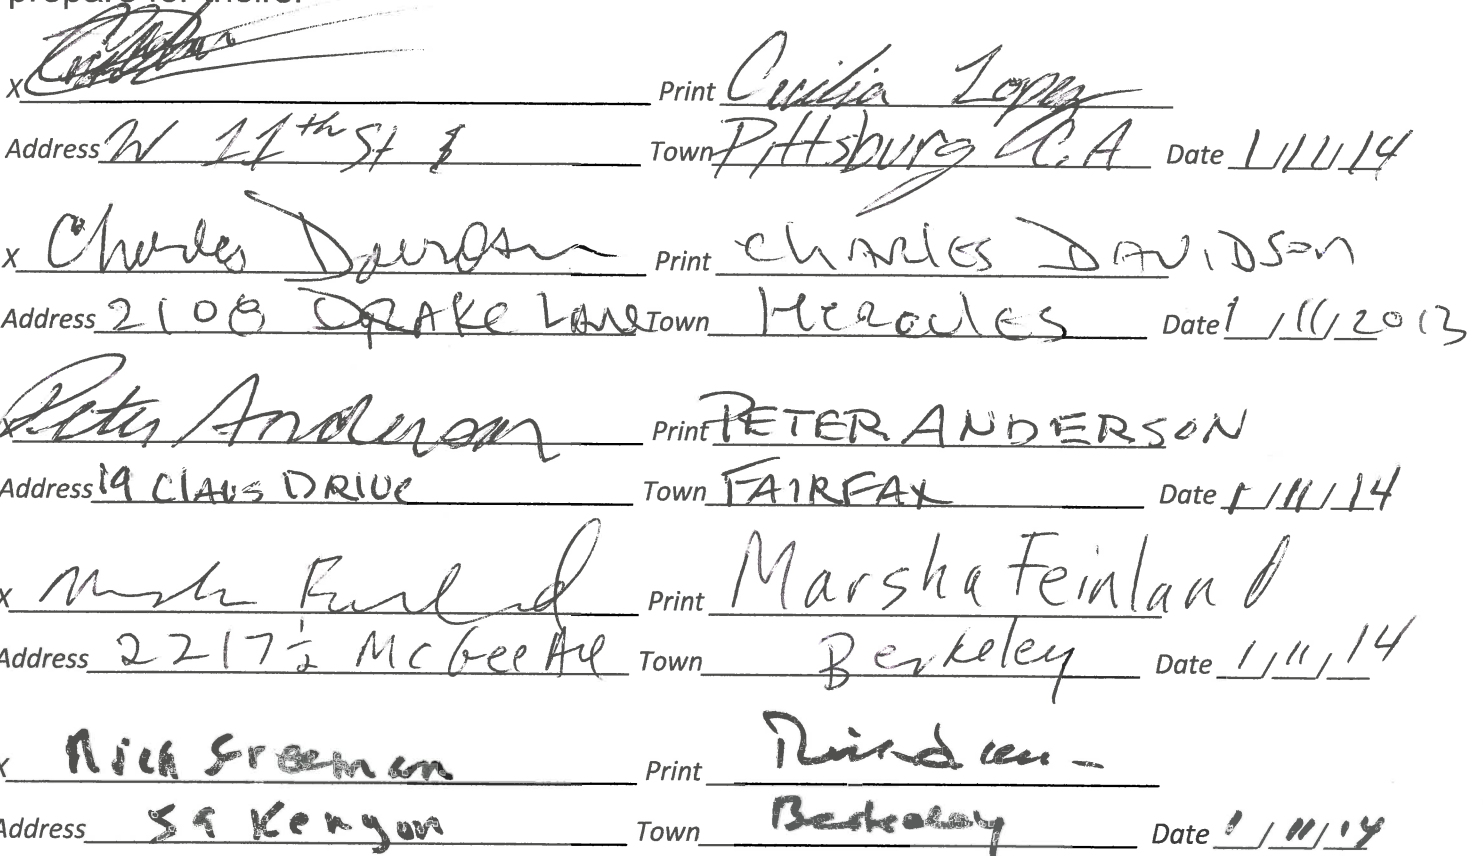 prepare for theirs.
X Print Cecilia Lopez
Address W 11th St Town Pittsburg C.A Date 1/11/14
X Charles Davidson Print ChARlES DAVIDSon
Address 2108 DRAKE LANE Town HERculES Date 1/11/2013
X Peter Anderson Print PETER ANDERSON
Address 19 ClAUS DRIVE Town FAIRFAX Date 1/11/14
X Marsha Feinland Print Marsha Feinland
Address 2217½ McGee Ave Town Berkeley Date 1/11/14
X Rich Freeman Print
Address 59 Kenyon Town Berkeley Date 1/11/14